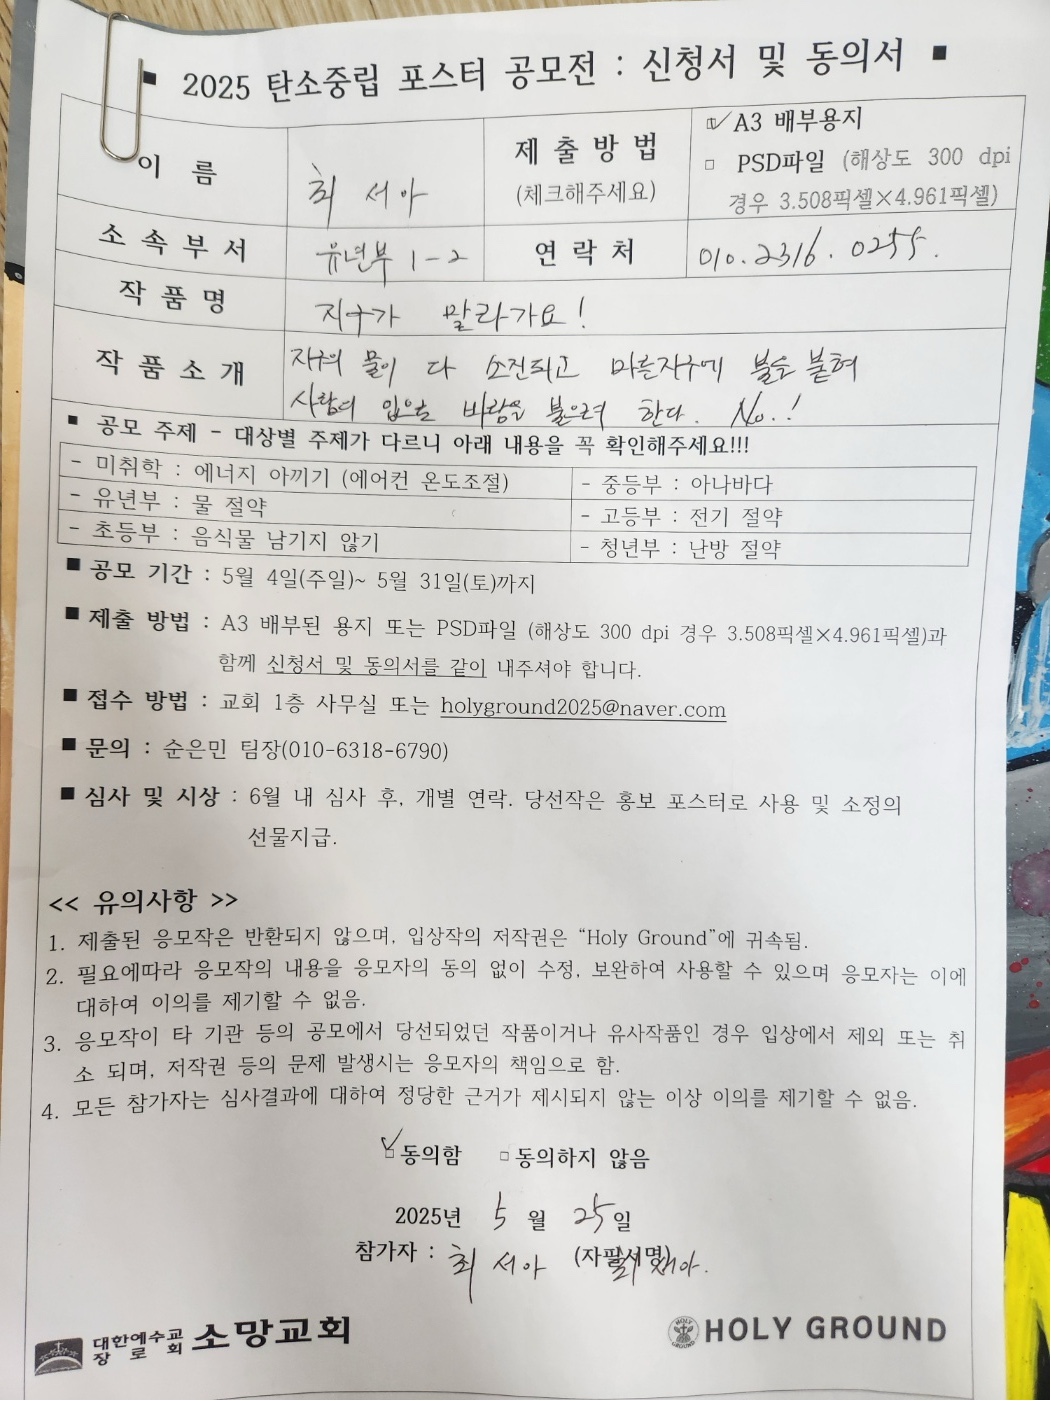 ■ 2025 탄소중립 포스터 공모전 : 신청서 및 동의서 ■
이 름
최 서아
제 출 방 법
(체크해주세요)
☑ A3 배부용지
□ PSD파일 (해상도 300 dpi
경우 3.508픽셀×4.961픽셀)
소 속 부 서
유년부 1-2
연 락 처
010.2316.0255.
작 품 명
지구가 말라가요!
작 품 소 개
지구의 물이 다 소진되고 마른지구에 불을 붙혀
사람이 입으로 바람을 불으려 한다. No.!
■ 공모 주제 - 대상별 주제가 다르니 아래 내용을 꼭 확인해주세요!!!
- 미취학 : 에너지 아끼기 (에어컨 온도조절)
- 중등부 : 아나바다
- 유년부 : 물 절약
- 고등부 : 전기 절약
- 초등부 : 음식물 남기지 않기
- 청년부 : 난방 절약
■ 공모 기간 : 5월 4일(주일)~ 5월 31일(토)까지
■ 제출 방법 : A3 배부된 용지 또는 PSD파일 (해상도 300 dpi 경우 3.508픽셀×4.961픽셀)과
함께 신청서 및 동의서를 같이 내주셔야 합니다.
■ 접수 방법 : 교회 1층 사무실 또는 holyground2025@naver.com
■ 문의 : 순은민 팀장(010-6318-6790)
■ 심사 및 시상 : 6월 내 심사 후, 개별 연락. 당선작은 홍보 포스터로 사용 및 소정의
선물지급.
<< 유의사항 >>
1. 제출된 응모작은 반환되지 않으며, 입상작의 저작권은 “Holy Ground”에 귀속됨.
2. 필요에따라 응모작의 내용을 응모자의 동의 없이 수정, 보완하여 사용할 수 있으며 응모자는 이에
대하여 이의를 제기할 수 없음.
3. 응모작이 타 기관 등의 공모에서 당선되었던 작품이거나 유사작품인 경우 입상에서 제외 또는 취
소 되며, 저작권 등의 문제 발생시는 응모자의 책임으로 함.
4. 모든 참가자는 심사결과에 대하여 정당한 근거가 제시되지 않는 이상 이의를 제기할 수 없음.
☑ 동의함 □ 동의하지 않음
2025년 5 월 25 일
참가자 : 최 서아 (자필서명) 최서아.
대한예수교
장로회
소망교회
HOLY GROUND